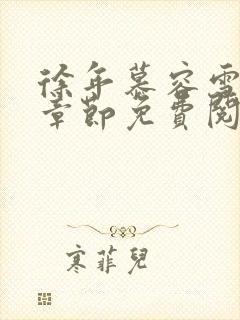 徐年慕容雪
章節免費閱
寒菲兒